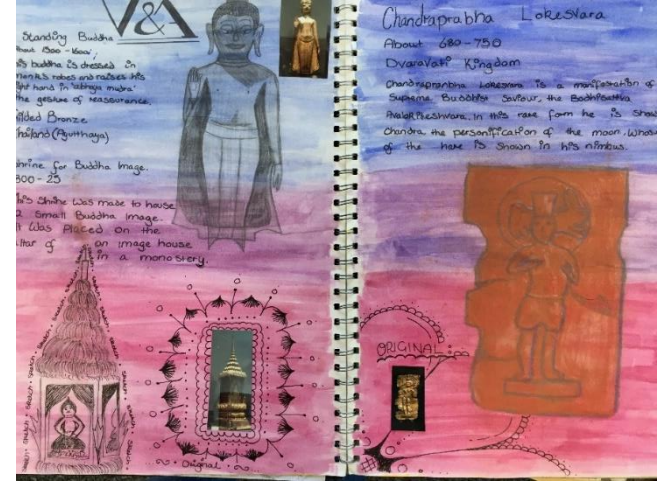 V&A
Standing Buddha
About 1500 - 1600
his buddha is dressed in
monks robes and raises his
ght hand in 'abhaya mudra'
the gesture of reassurance.
ilded Bronze
hailand (Ayutthaya)
hrine for Buddha Image.
800 - 25
his Shrine was made to house
a Small Buddha Image.
it was Placed on the
ltar of an image house
in a monastery.
SKETCH • SKETCH • SKETCH
Original
Chandraprabha Lokesvara
About 680-750
Dvaravati Kingdom
Chandraprabha Lokesvara is a manifestation of
Supreme Buddhist Saviour, the Bodhisattva
Avalokiteshvara. In this rare form he is show
Chandra, the personification of the moon, whose
of the hare is shown in his nimbus.
ORIGINAL